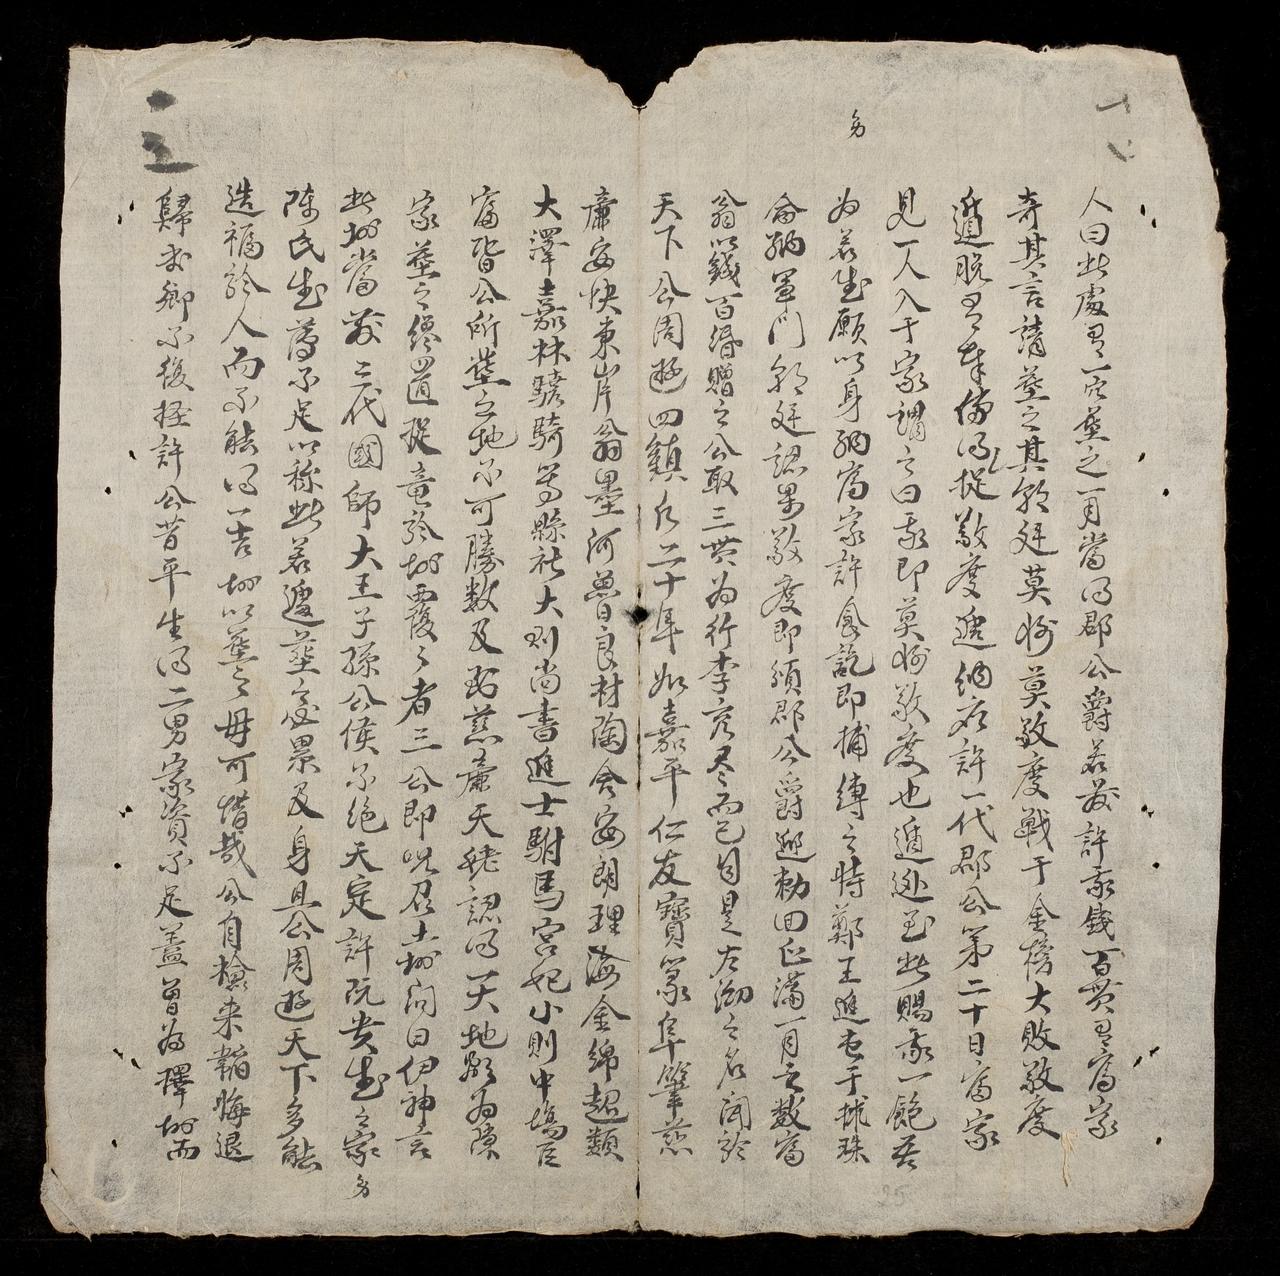 人曰此處有一穴葬之一月當得郡公爵若發許我錢百貫有富家
奇其言請葬之其朝廷莫將莫敬度戰于金榜大敗敬度
遁脫有奉傳得捉敬度遞納者許一代郡公第二十日富家
見一人入于家謂之曰我即莫將敬度也遁逃至此賜我一飽若
為君生願以身納富家許食訖即捕縛之時鄭王進屯于球珠
命納軍門朝廷認得敬度即頒郡公爵迎勅回正滿一月之數富
翁以錢百緡贈之公取三貫為行李之資而已自是左泑之名聞於
天下公周遊四鎮凡二十年如嘉平仁友寶篆阜肇慈
廉安快東岸片翁墨河魯良材陶舍安朗理海金綿超類
大澤嘉林驍騎等縣社大則尚書進士駙馬宮妃小則中塲巨
富皆公所葬之地不可勝数及到慈廉天姥認得一大地點為陳
家葬之纔四直捉竜於坳覆之者三公即呪召土坳问曰伊神言
此坳當發三代國師大王子孫公侯不絶天定許阮貴生之家
陳氏生薄不足以称此若逼葬之必累及身且公周遊天下多能
造福於人而不能得一吉坳以葬之毋可惜哉公自檢来韜晦退
歸本鄉不復擇許公昔平生得二男家資不足蓋曾為擇坳而